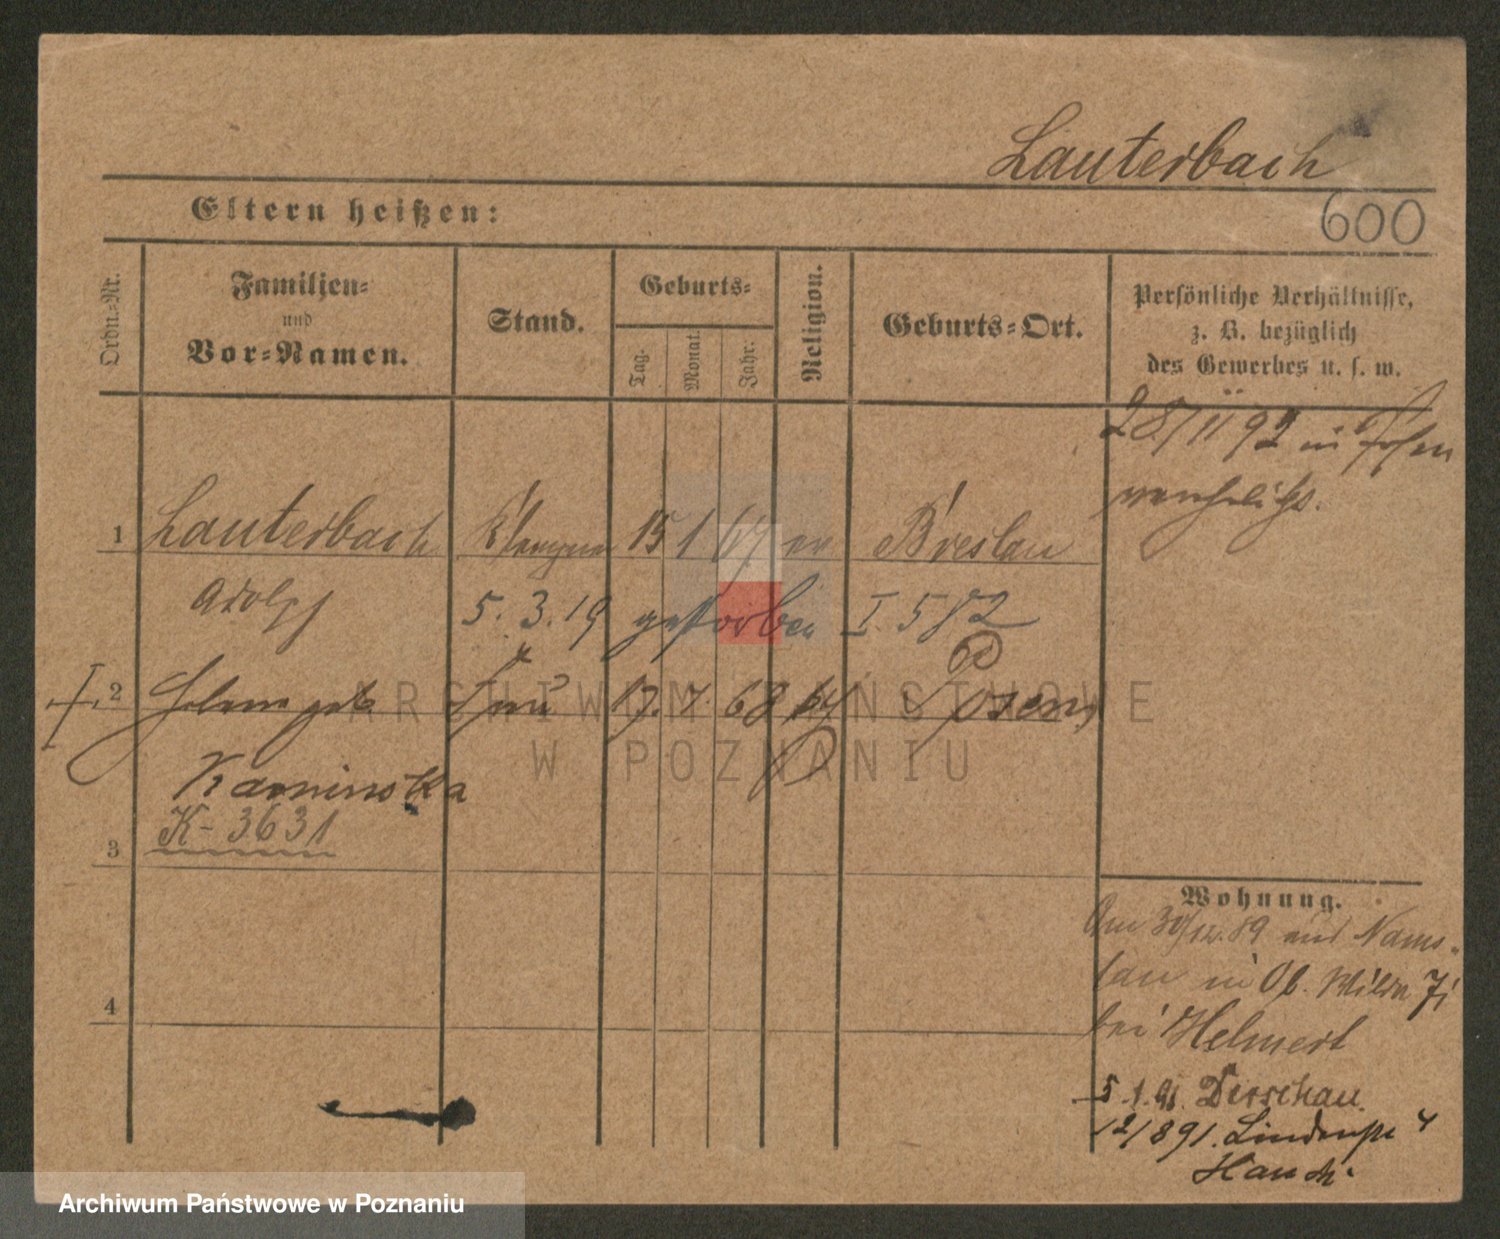 Lauterbach
Eltern heißen:
600
Ordn.-Nr.
Familien-
und
Vor-Namen.
Stand.
Geburts-
Tag.
Monat.
Jahr.
Religion.
Geburts-Ort.
Persönliche Verhältnisse,
z. B. bezüglich
des Gewerbes u. s. w.
28/11 92 in Posen
verehelicht.
1 Lauterbach Klempner 15 1 67 ev Breslau
Adolf 5. 3. 19 gestorben I 582
2 Helene geb 17. 7. 68 Posen
Kaminska
K-3631
3
Wohnung.
Am 30/12. 89 aus Nams-
lau in Ob. Wilda 71
bei Helmert
4
5. 1. 91. Derschau
12/8 91. Lindenstr 4
Hauch.
ARCHIWUM PAŃSTWOWE
W POZNANIU
Archiwum Państwowe w Poznaniu